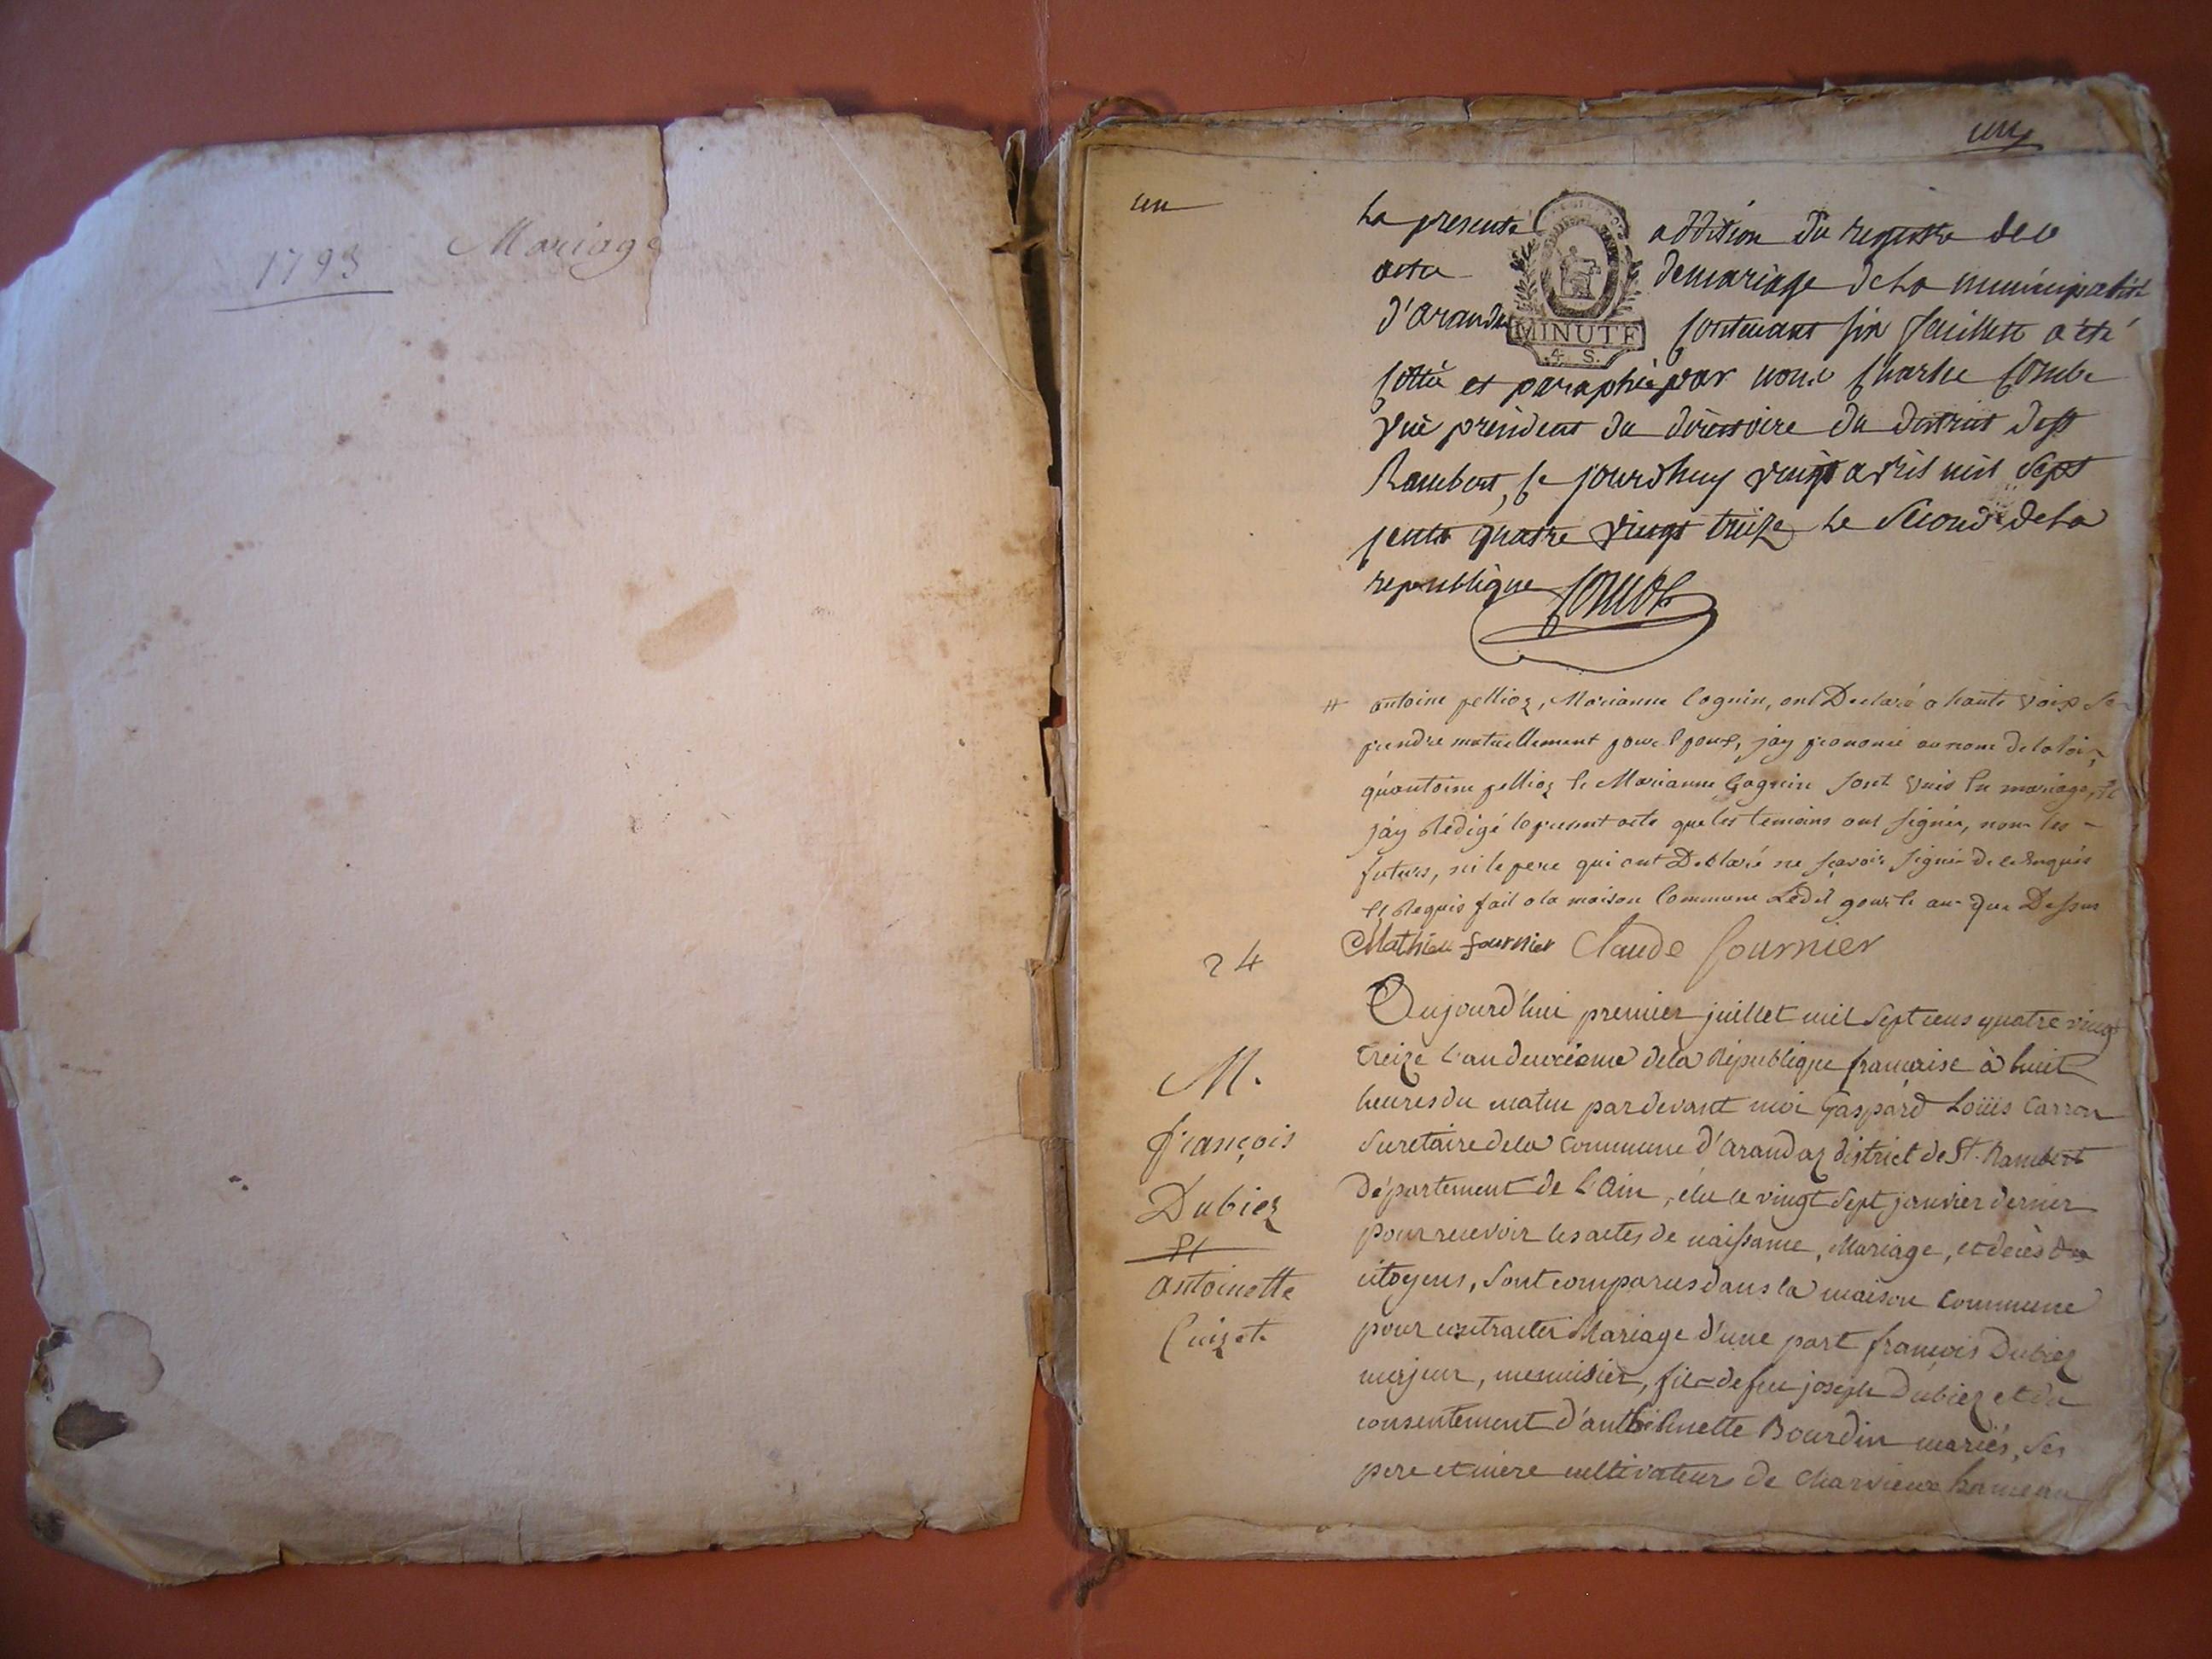 1793 Mariage
un
un
La presente addition du registre des
actes de mariage de La municipalité
d'arandas contenant six feuillets a été
MINUTE
4. S.
cotté et paraphé par nous Charles Combe
vice président du directoire du district de st
Rambert, ce jourdhuy vingt avril mil sept
cents quatre vingt treize Le Second de La
republique
# antoine pellioz, Marianne Cognin, ont Declaré a haute voix se
prendre mutuellement pour Epoux, jay prononcé au nom de la loi,
qu'antoine pellioz Et Marianne Cognin sont unis En mariage, Et
j'ay Redigé le present acte que les temoins ont signés, non les
futurs, ni le pere qui ont Declaré ne sçavoir signer de ce Enquis
Et Requis fait a la maison Commune Ledit jour Et an que Dessus
Mathieu fournier Claude fournier
24
Aujourd'hui premier juillet mil sept cens quatre vingt
treize l'an deuxieme de la République française à huit
heures du matin par devant moi Gaspard Loüis Carron
Secretaire de la Commune d'arandaz district de St. Rambert
Département de L'Ain, élu le vingt sept janvier dernier
pour recevoir les actes de naissance, Mariage, et décès des
citoyens, sont comparus dans la maison Commune
pour contracter Mariage d'une part françois Dubiez
majeur, menuisier, fils de feu joseph Dubiez et du
consentement d'anthelmette Bourdin mariés, Ses
pere et mère cultivateurs de Charvieux hameau
M.
françois
Dubiez
Et
antoinette
Cuizet